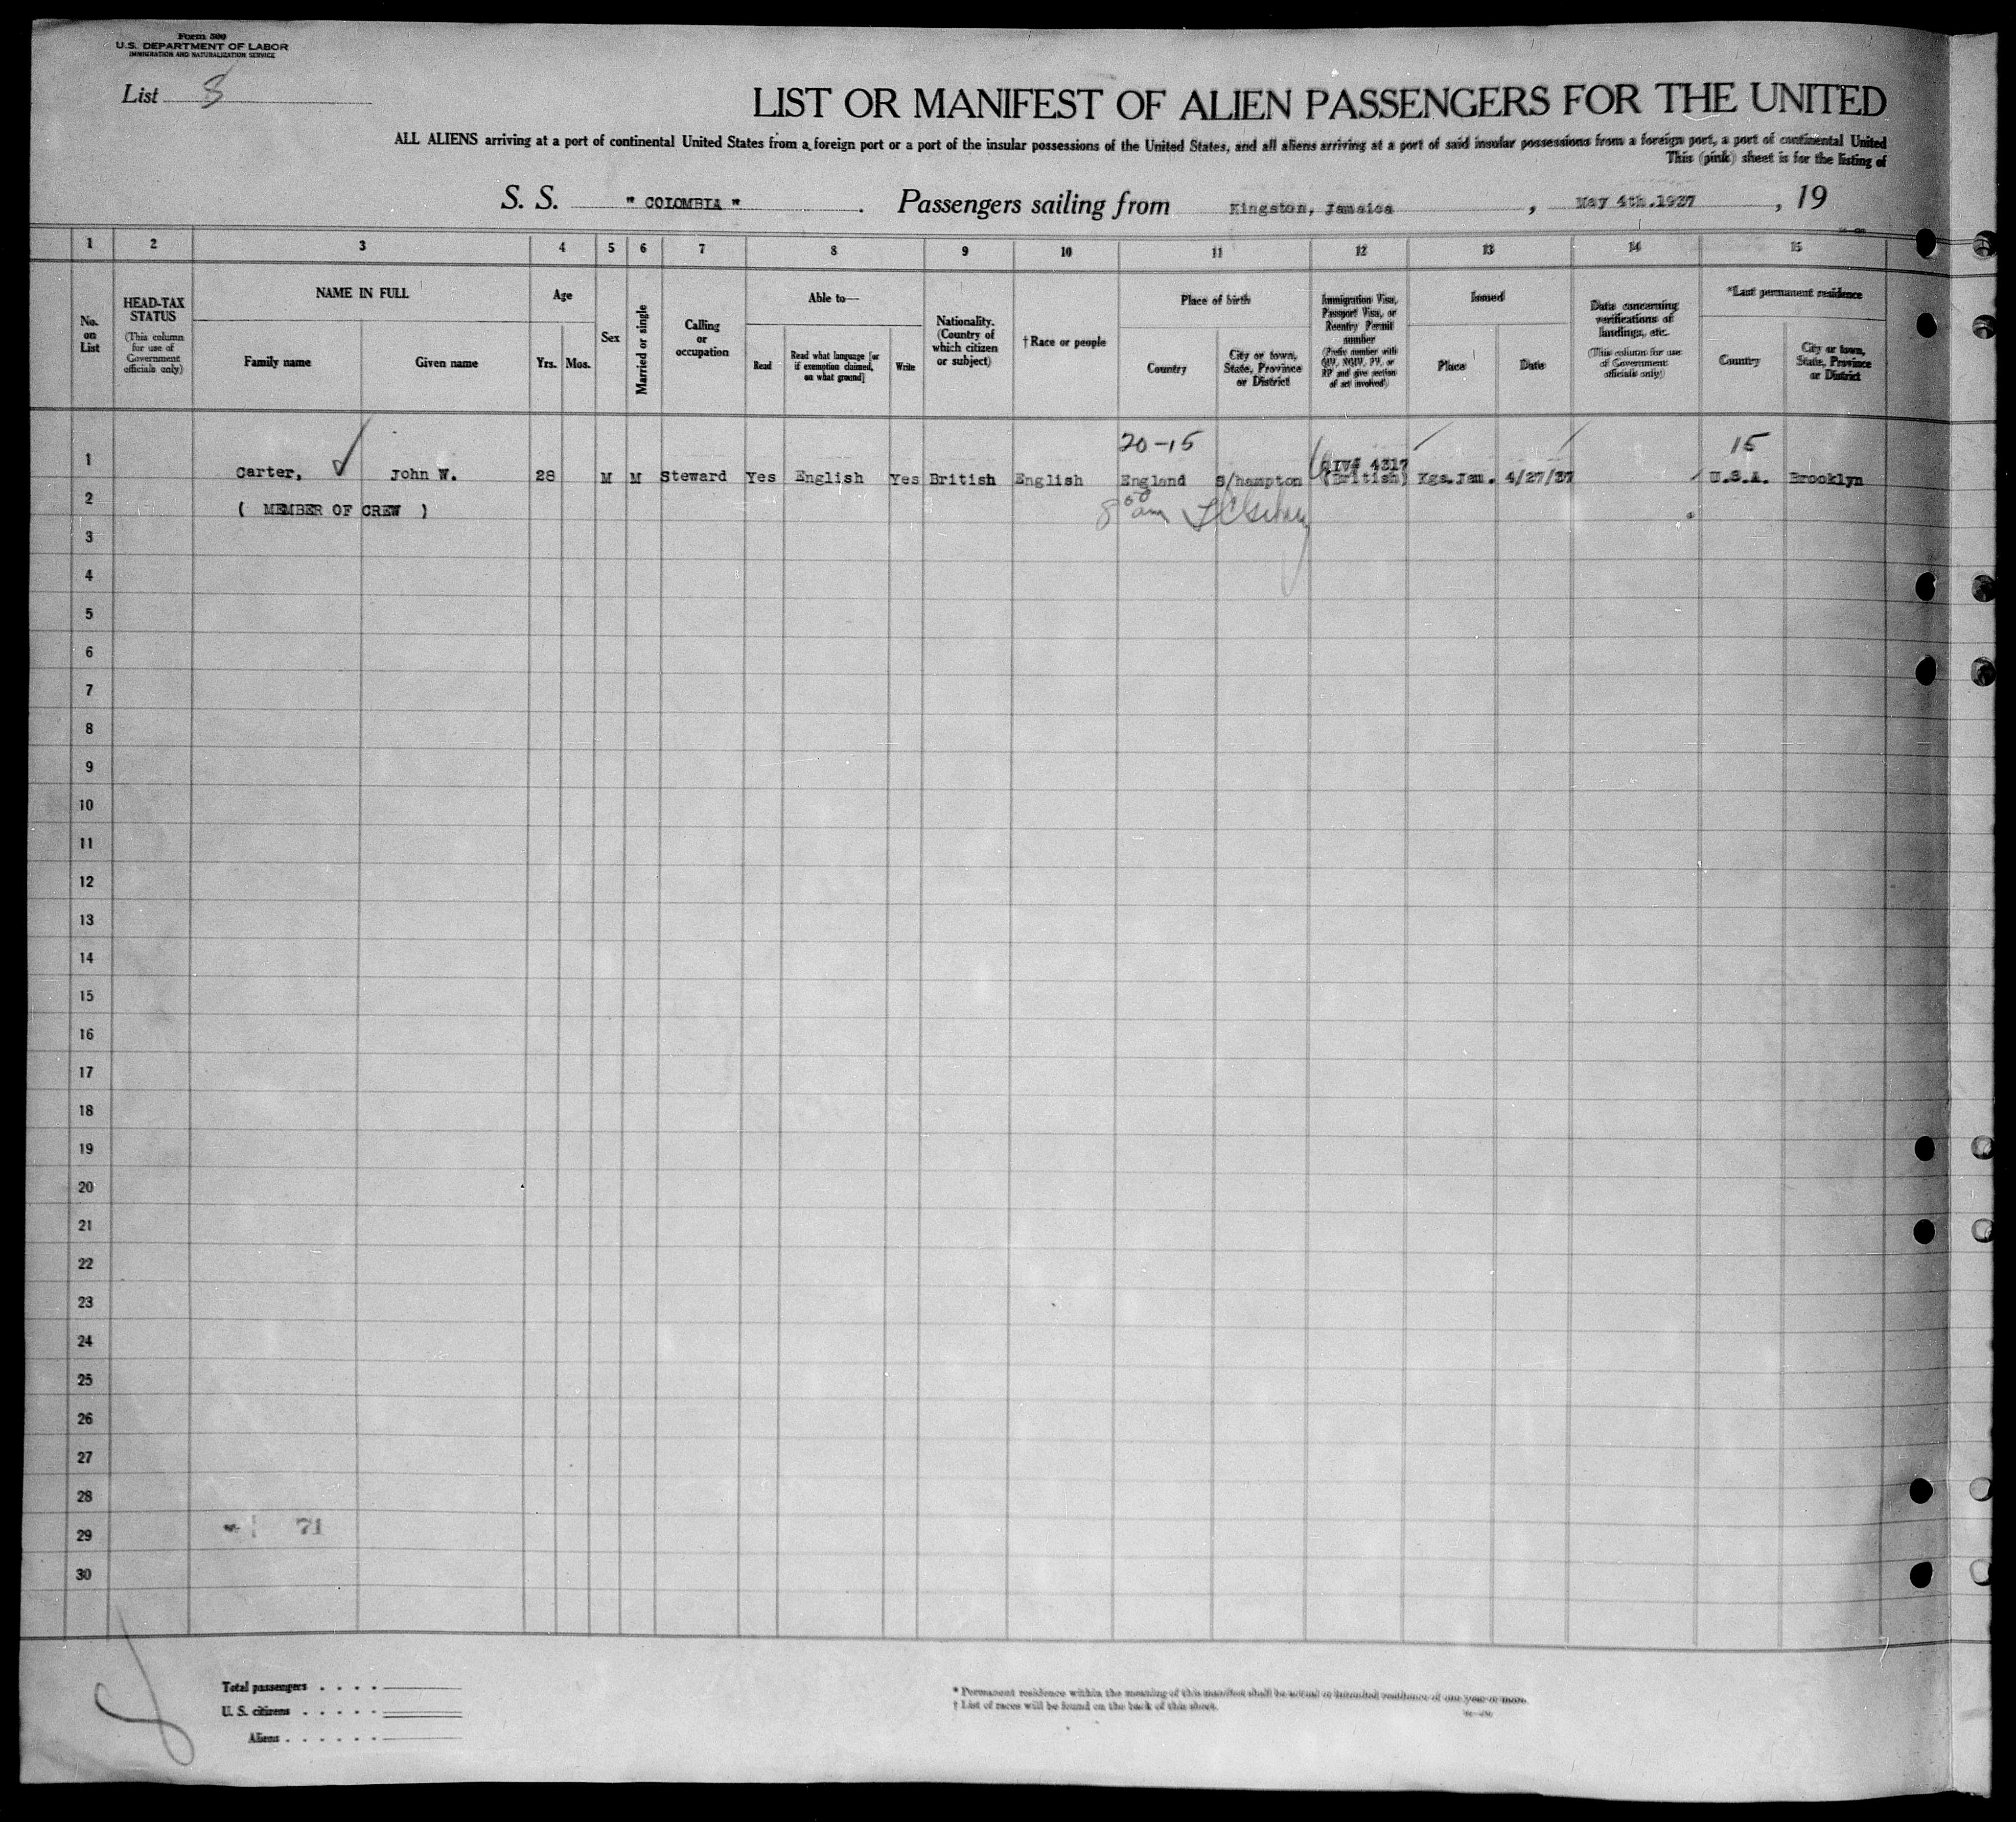 Form 500
U.S. DEPARTMENT OF LABOR
IMMIGRATION AND NATURALIZATION SERVICE
List 8
LIST OR MANIFEST OF ALIEN PASSENGERS FOR THE UNITED
ALL ALIENS arriving at a port of continental United States from a foreign port or a port of the insular possessions of the United States, and all aliens arriving at a port of said insular possessions from a foreign port, a port of continental United
This (pink) sheet is for the listing of
S. S. " COLOMBIA " . Passengers sailing from Kingston, Jamaica , May 4th.1937 , 19
1 2 3 4 5 6 7 8 9 10 11 12 13 14 15
No. on List
HEAD-TAX STATUS
(This column for use of Government officials only)
NAME IN FULL
Family name Given name
Age
Yrs. Mos.
Sex
Married or single
Calling or occupation
Able to—
Read
Read what language [or if exemption claimed, on what ground]
Write
Nationality. (Country of which citizen or subject)
†Race or people
Place of birth
Country
City or town, State, Province or District
Immigration Visa, Passport Visa, or Reentry Permit number
(Prefix number with QIV, NQIV, PV, or RP and give section of act involved)
Issued
Place Date
Data concerning verifications of landings, etc.
(This column for use of Government officials only)
*Last permanent residence
Country
City or town, State, Province or District
20-15 15
1 Carter, John W. 28 M M Steward Yes English Yes British English England S/hampton QIV# 4317 (British) Kgs.Jam. 4/27/37 U.S.A. Brooklyn
2 ( MEMBER OF CREW ) 8 00 am
3
4
5
6
7
8
9
10
11
12
13
14
15
16
17
18
19
20
21
22
23
24
25
26
27
28
29 71
30
Total passengers . . . .
U. S. citizens . . . . .
Aliens . . . . . .
* Permanent residence within the meaning of this manifest shall be actual or intended residence of one year or more.
† List of races will be found on the back of this sheet.